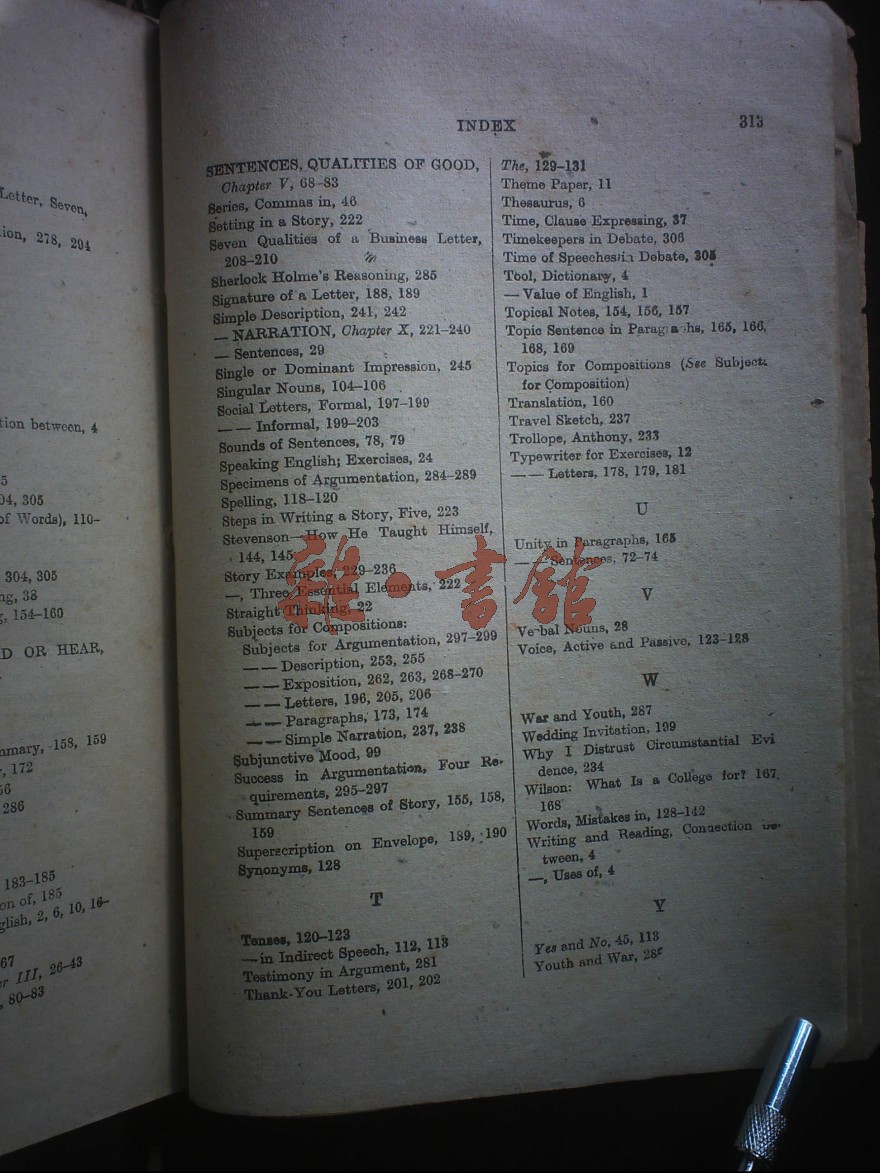 Letter, Seven,
278, 294
tion between, 4
5
04, 305
of Words), 110-
304, 305
ng, 38
g, 154-160
D OR HEAR,
mmary, 158, 159
, 172
56
286
183-185
on of, 185
glish, 2, 6, 10, 16-
67
er III, 26-43
, 80-83
INDEX 313
SENTENCES, QUALITIES OF GOOD,
Chapter V, 68-83
Series, Commas in, 46
Setting in a Story, 222
Seven Qualities of a Business Letter,
208-210
Sherlock Holme's Reasoning, 285
Signature of a Letter, 188, 189
Simple Description, 241, 242
— NARRATION, Chapter X, 221-240
— Sentences, 29
Single or Dominant Impression, 245
Singular Nouns, 104-106
Social Letters, Formal, 197-199
— — Informal, 199-203
Sounds of Sentences, 78, 79
Speaking English; Exercises, 24
Specimens of Argumentation, 284-289
Spelling, 118-120
Steps in Writing a Story, Five, 223
Stevenson—How He Taught Himself,
144, 145
Story Examples, 229-236
—, Three Essential Elements, 222
Straight Thinking, 22
Subjects for Compositions:
Subjects for Argumentation, 297-299
— — Description, 253, 255
— — Exposition, 262, 263, 268-270
— — Letters, 196, 205, 206
— — Paragraphs, 173, 174
— — Simple Narration, 237, 238
Subjunctive Mood, 99
Success in Argumentation, Four Re-
quirements, 295-297
Summary Sentences of Story, 155, 158,
159
Superscription on Envelope, 189, 190
Synonyms, 128
T
Tenses, 120-123
— in Indirect Speech, 112, 113
Testimony in Argument, 281
Thank-You Letters, 201, 202
The, 129-131
Theme Paper, 11
Thesaurus, 6
Time, Clause Expressing, 37
Timekeepers in Debate, 306
Time of Speeches in Debate, 305
Tool, Dictionary, 4
— Value of English, 1
Topical Notes, 154, 156, 157
Topic Sentence in Paragraphs, 165, 166,
168, 169
Topics for Compositions (See Subjects
for Composition)
Translation, 160
Travel Sketch, 237
Trollope, Anthony, 233
Typewriter for Exercises, 12
— — Letters, 178, 179, 181
U
Unity in Paragraphs, 165
— — Sentences, 72-74
V
Verbal Nouns, 28
Voice, Active and Passive, 123-128
W
War and Youth, 287
Wedding Invitation, 199
Why I Distrust Circumstantial Evi
dence, 234
Wilson: What Is a College for? 167,
168
Words, Mistakes in, 128-142
Writing and Reading, Connection be-
tween, 4
—, Uses of, 4
Y
Yes and No, 45, 113
Youth and War, 28
雜·書舘